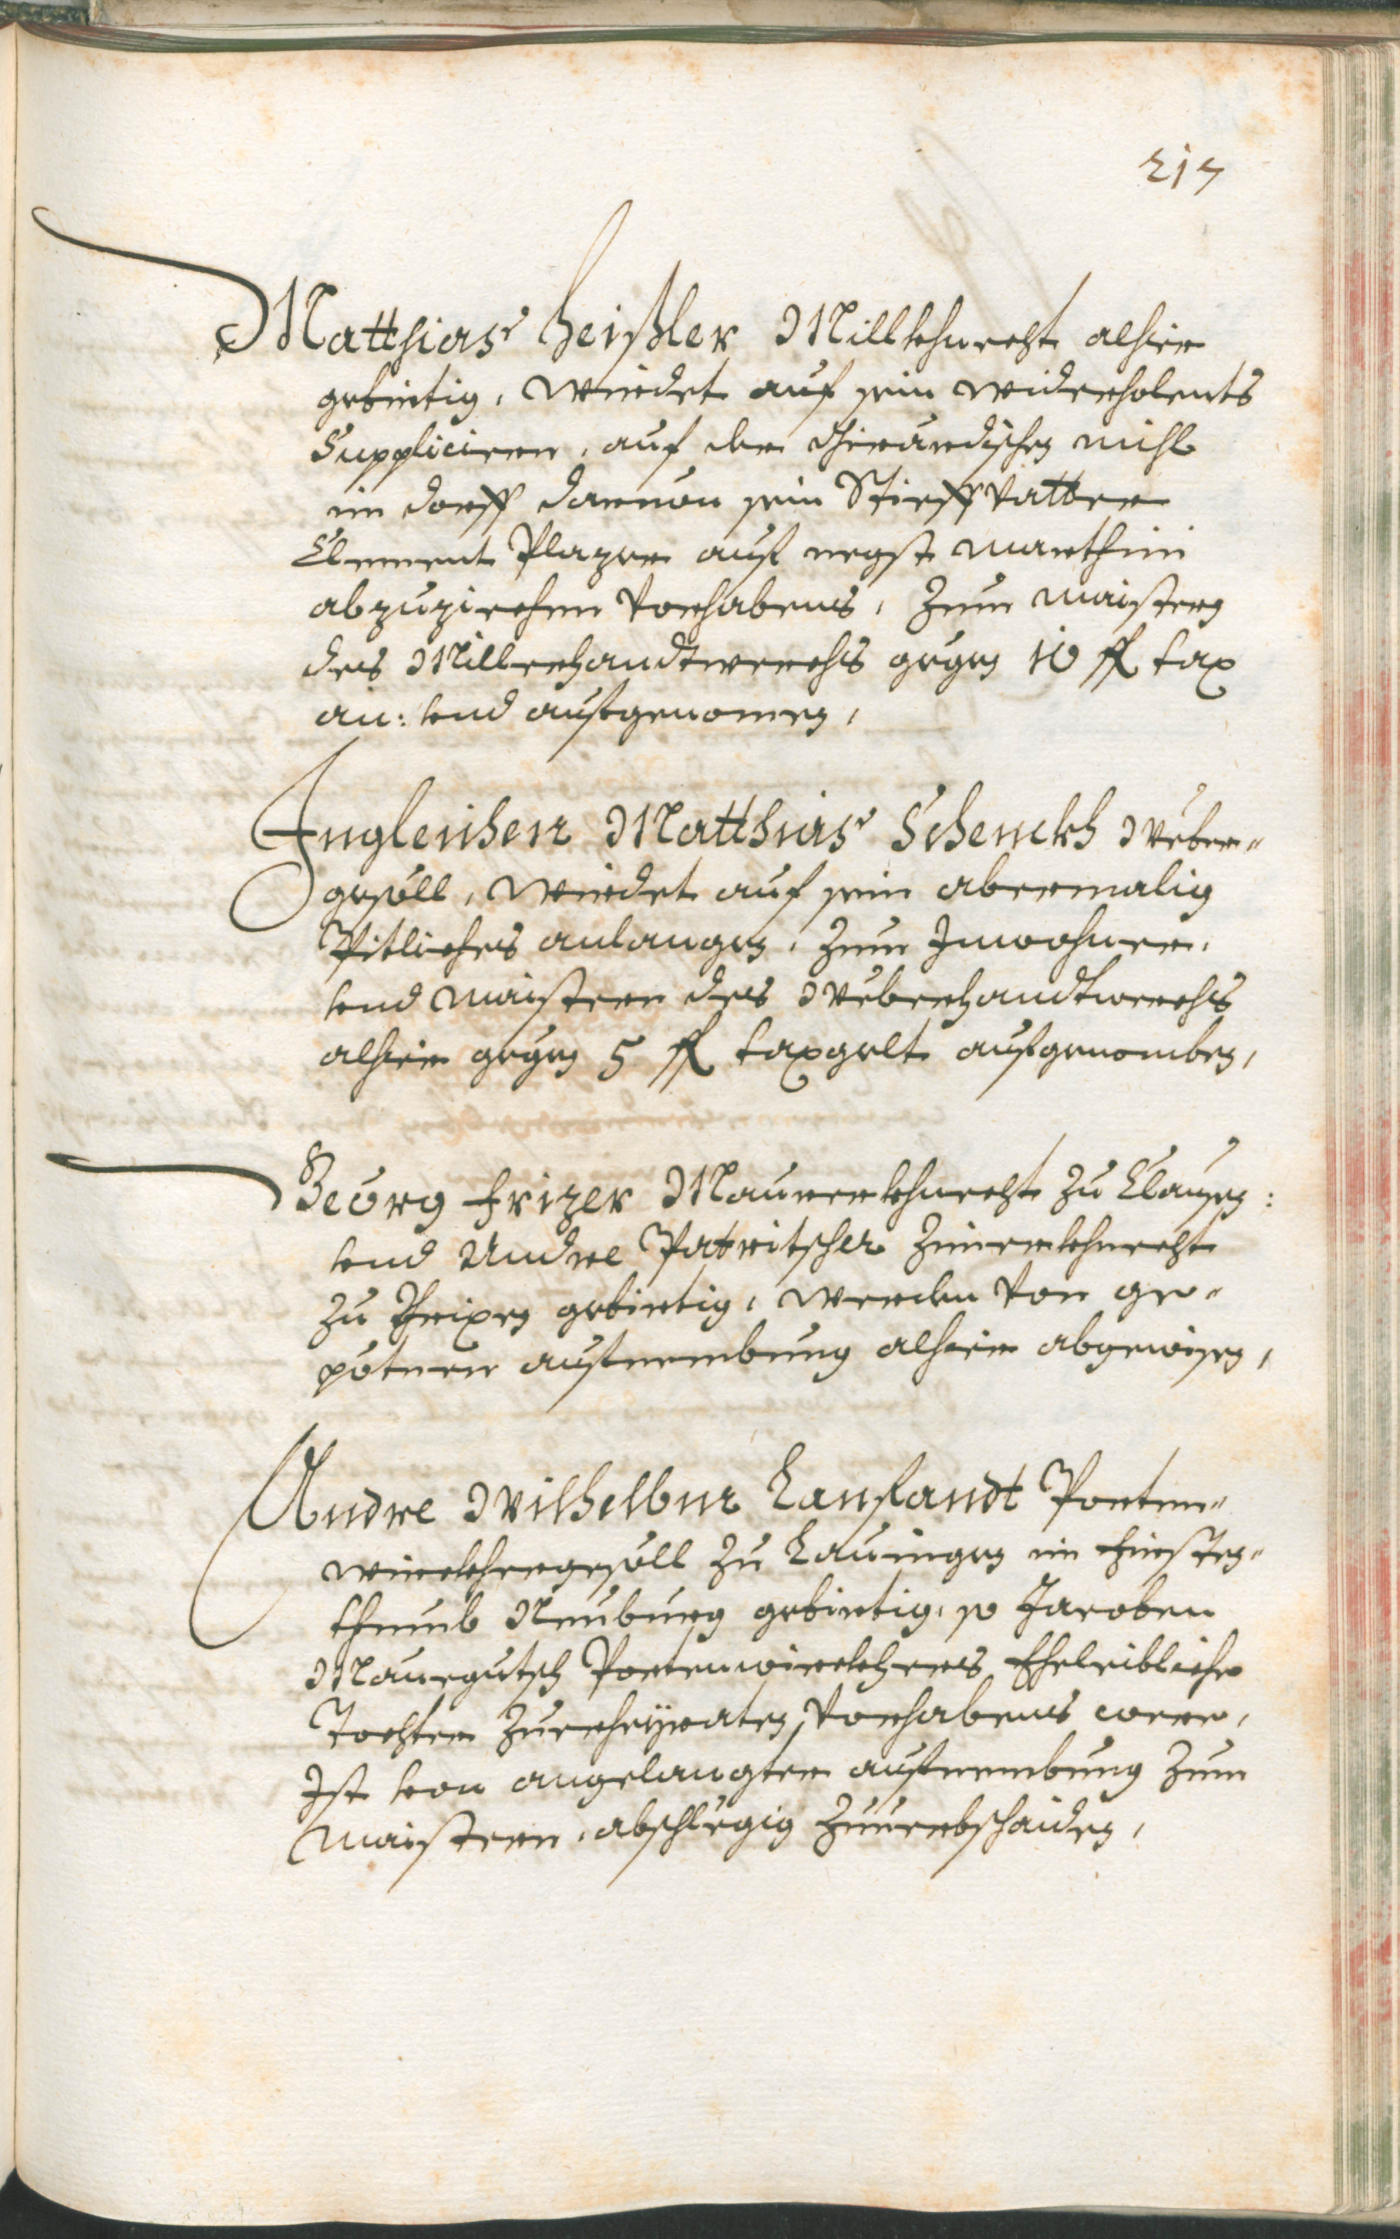 217
Matthias Heißler Millkhnecht alhier
gebirtig, wirdet auf sein widerholents
Suppliciern, auf der Gerardisches mihl
im dorff daruon sein Stieffvatter
Clement Plazer auf negst Marthini
abzuziechen vorhabens, zum maister
des Millerhandtwerchs gegen 10 fl tax
an: vnd aufgenomen,
Ingleichen Matthias Schenckh Weber-
gesöll, wirdet auf sein abermalig
Pitliches anlangen, zum Inwohner,
vnd maister des Weberhandtwerchs
alhier gegen 5 fl taxgelt aufgenomben,
Georg Frizer Maurerkhnecht zu Clausen:
vnd Andre Patritscher Zimerkhnecht
zu Brixen gebirtig, werden von ge-
pötner aufnembung alhier abgewisen,
Andre Wilhelbm Lanfandt Porten-
wirckhergesöll zu Lauingen im Fürsten-
thumb Neuburg gebirtig, so Jacoben
Maurgutsch Portenwirckhers Eheleibliche
Tochter zuerheyraten vorhabens were,
Ist von angelangter aufnembung zum
maister, abschlegig zuuerbschaiden,